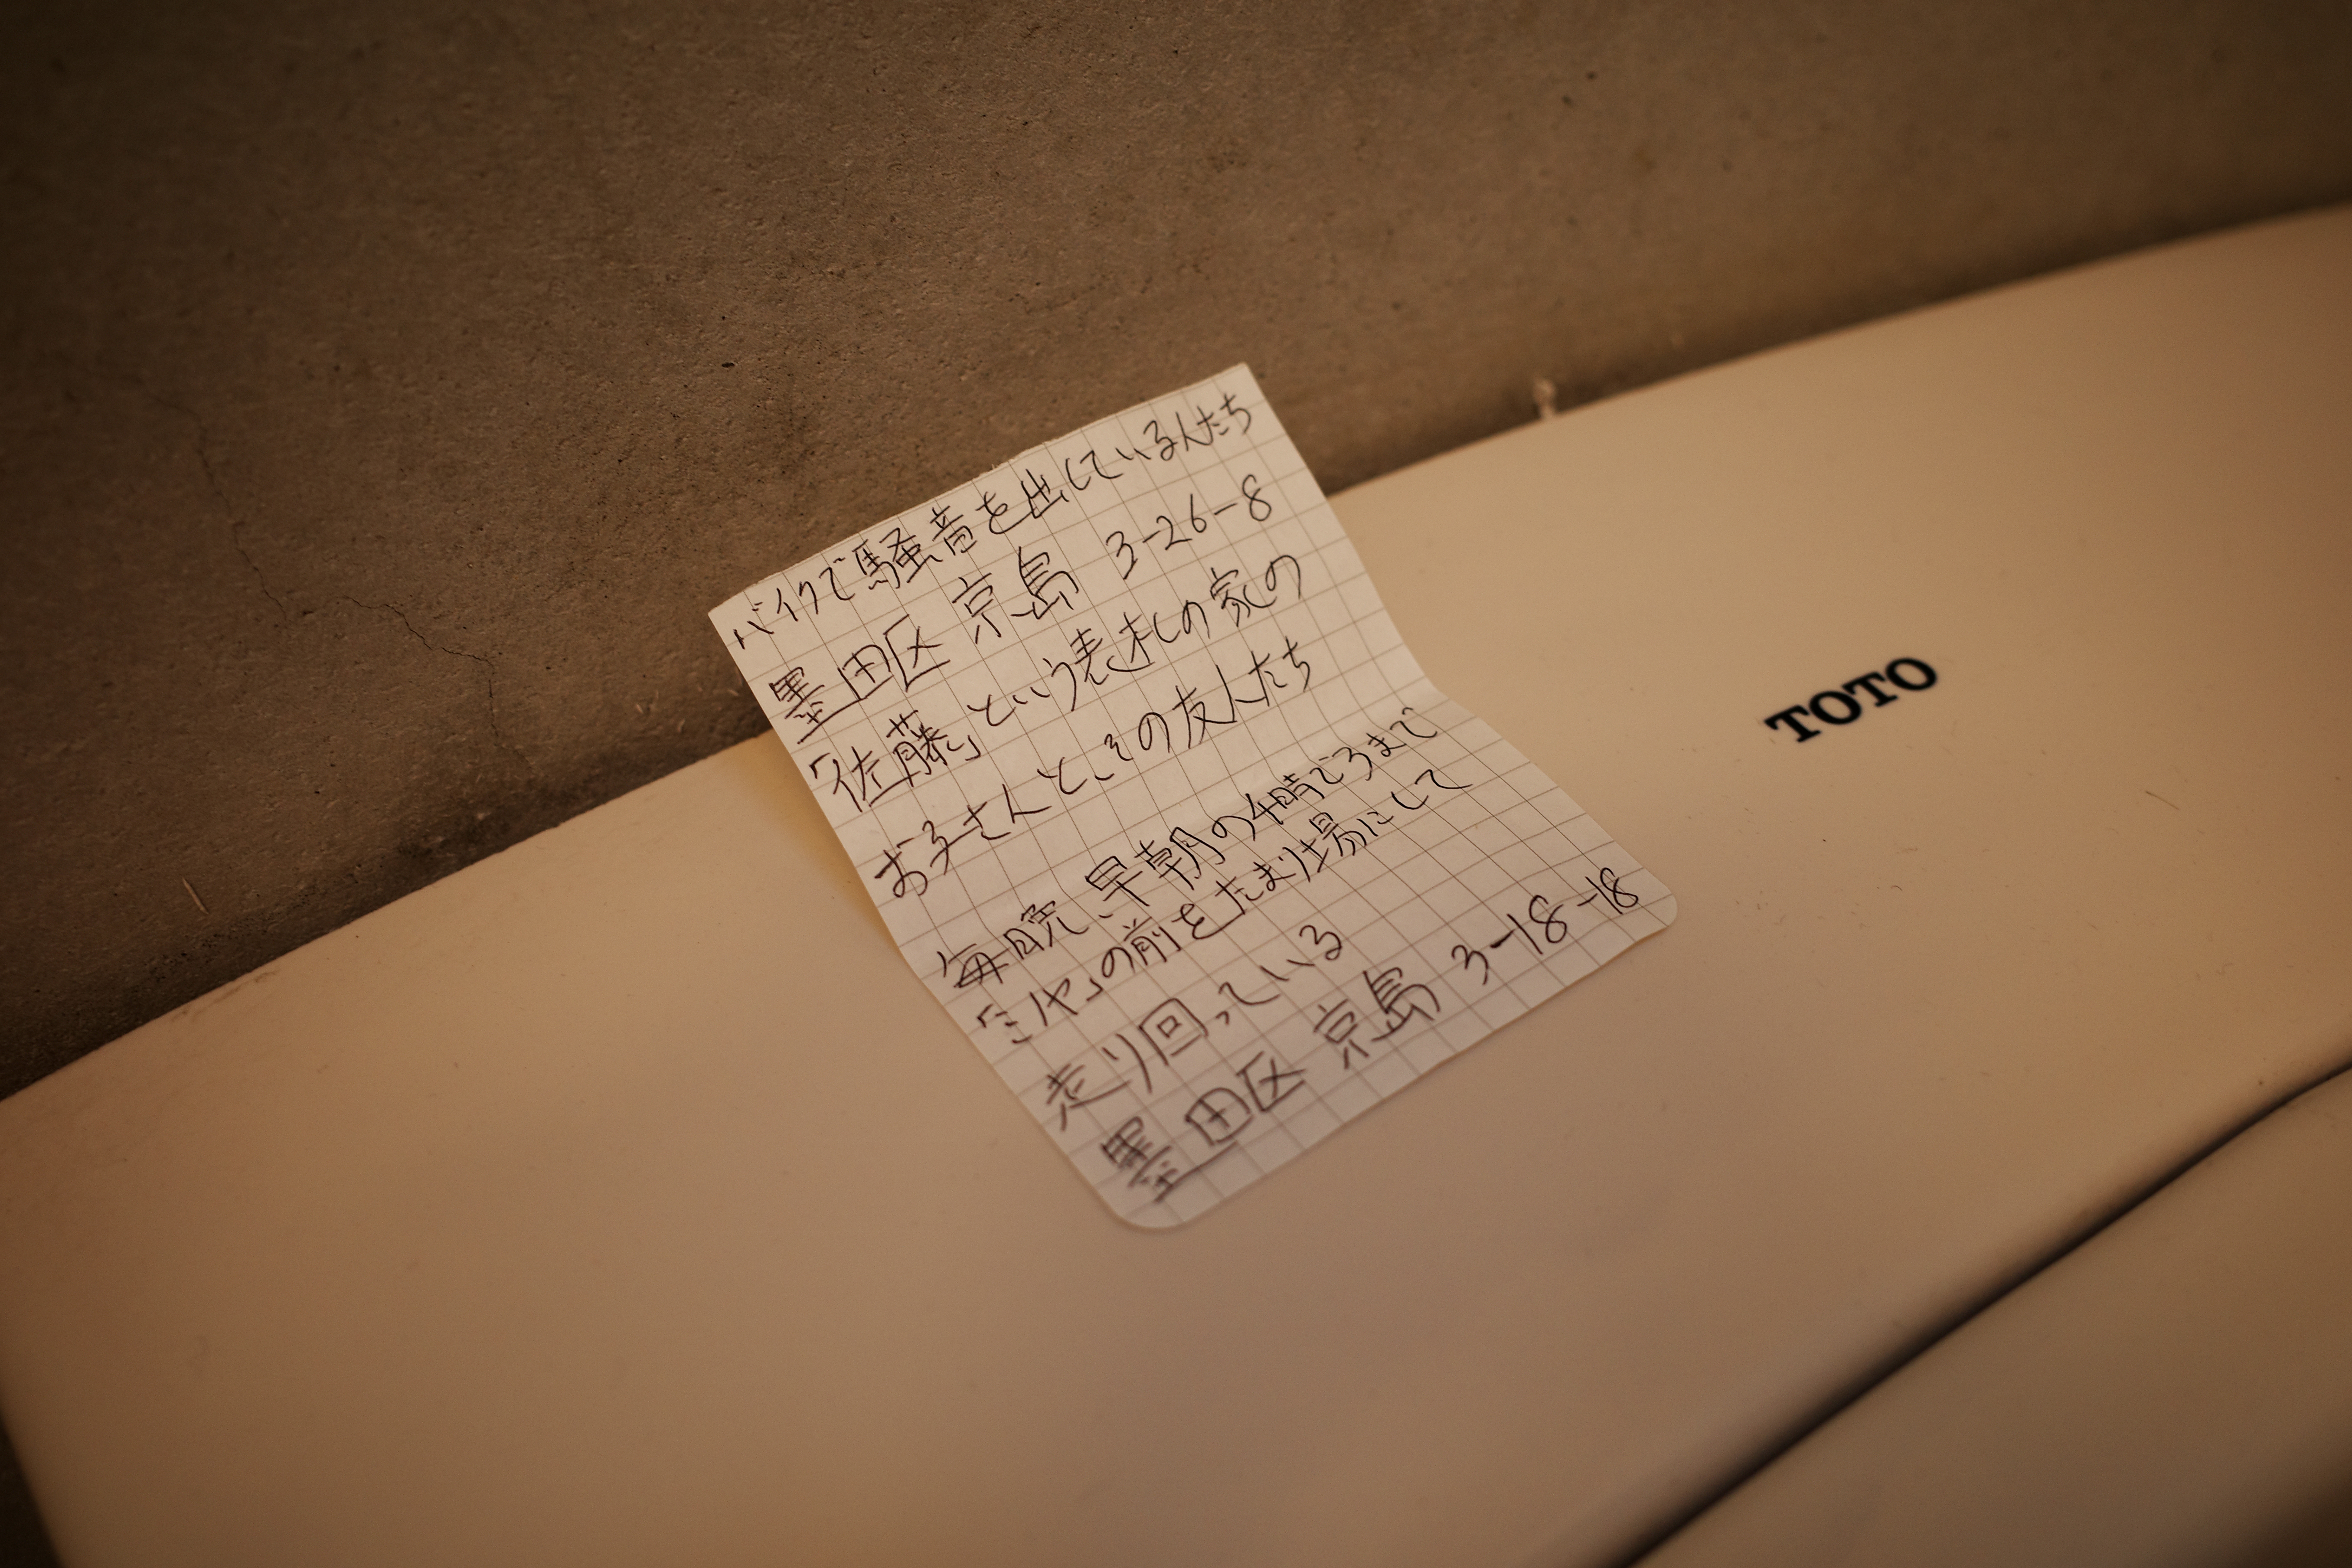 バイクで騒音を出している人たち
墨田区 京島 3-26-8
「佐藤」という表札の家の
お子さんとその友人たち
毎晩、早朝の4時ごろまで
「ミヤ」の前をたまり場にして
走り回っている
墨田区 京島 3-18-18
TOTO